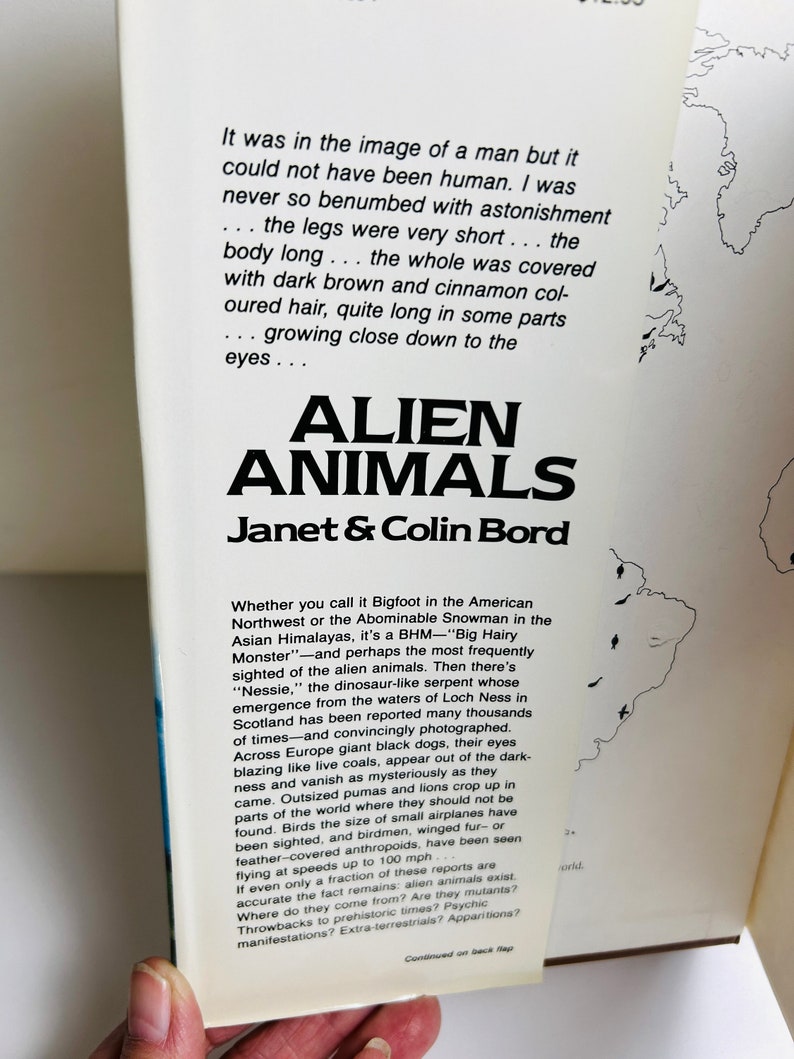 It was in the image of a man but it
could not have been human. I was
never so benumbed with astonishment
. . . the legs were very short . . . the
body long . . . the whole was covered
with dark brown and cinnamon col-
oured hair, quite long in some parts
. . . growing close down to the
eyes . . .
ALIEN
ANIMALS
Janet & Colin Bord
Whether you call it Bigfoot in the American
Northwest or the Abominable Snowman in the
Asian Himalayas, it's a BHM—"Big Hairy
Monster"—and perhaps the most frequently
sighted of the alien animals. Then there's
"Nessie," the dinosaur-like serpent whose
emergence from the waters of Loch Ness in
Scotland has been reported many thousands
of times—and convincingly photographed.
Across Europe giant black dogs, their eyes
blazing like live coals, appear out of the dark-
ness and vanish as mysteriously as they
came. Outsized pumas and lions crop up in
parts of the world where they should not be
found. Birds the size of small airplanes have
been sighted, and birdmen, winged fur– or
feather–covered anthropoids, have been seen
flying at speeds up to 100 mph . . .
If even only a fraction of these reports are
accurate the fact remains: alien animals exist.
Where do they come from? Are they mutants?
Throwbacks to prehistoric times? Psychic
manifestations? Extra-terrestrials? Apparitions?
Continued on back flap